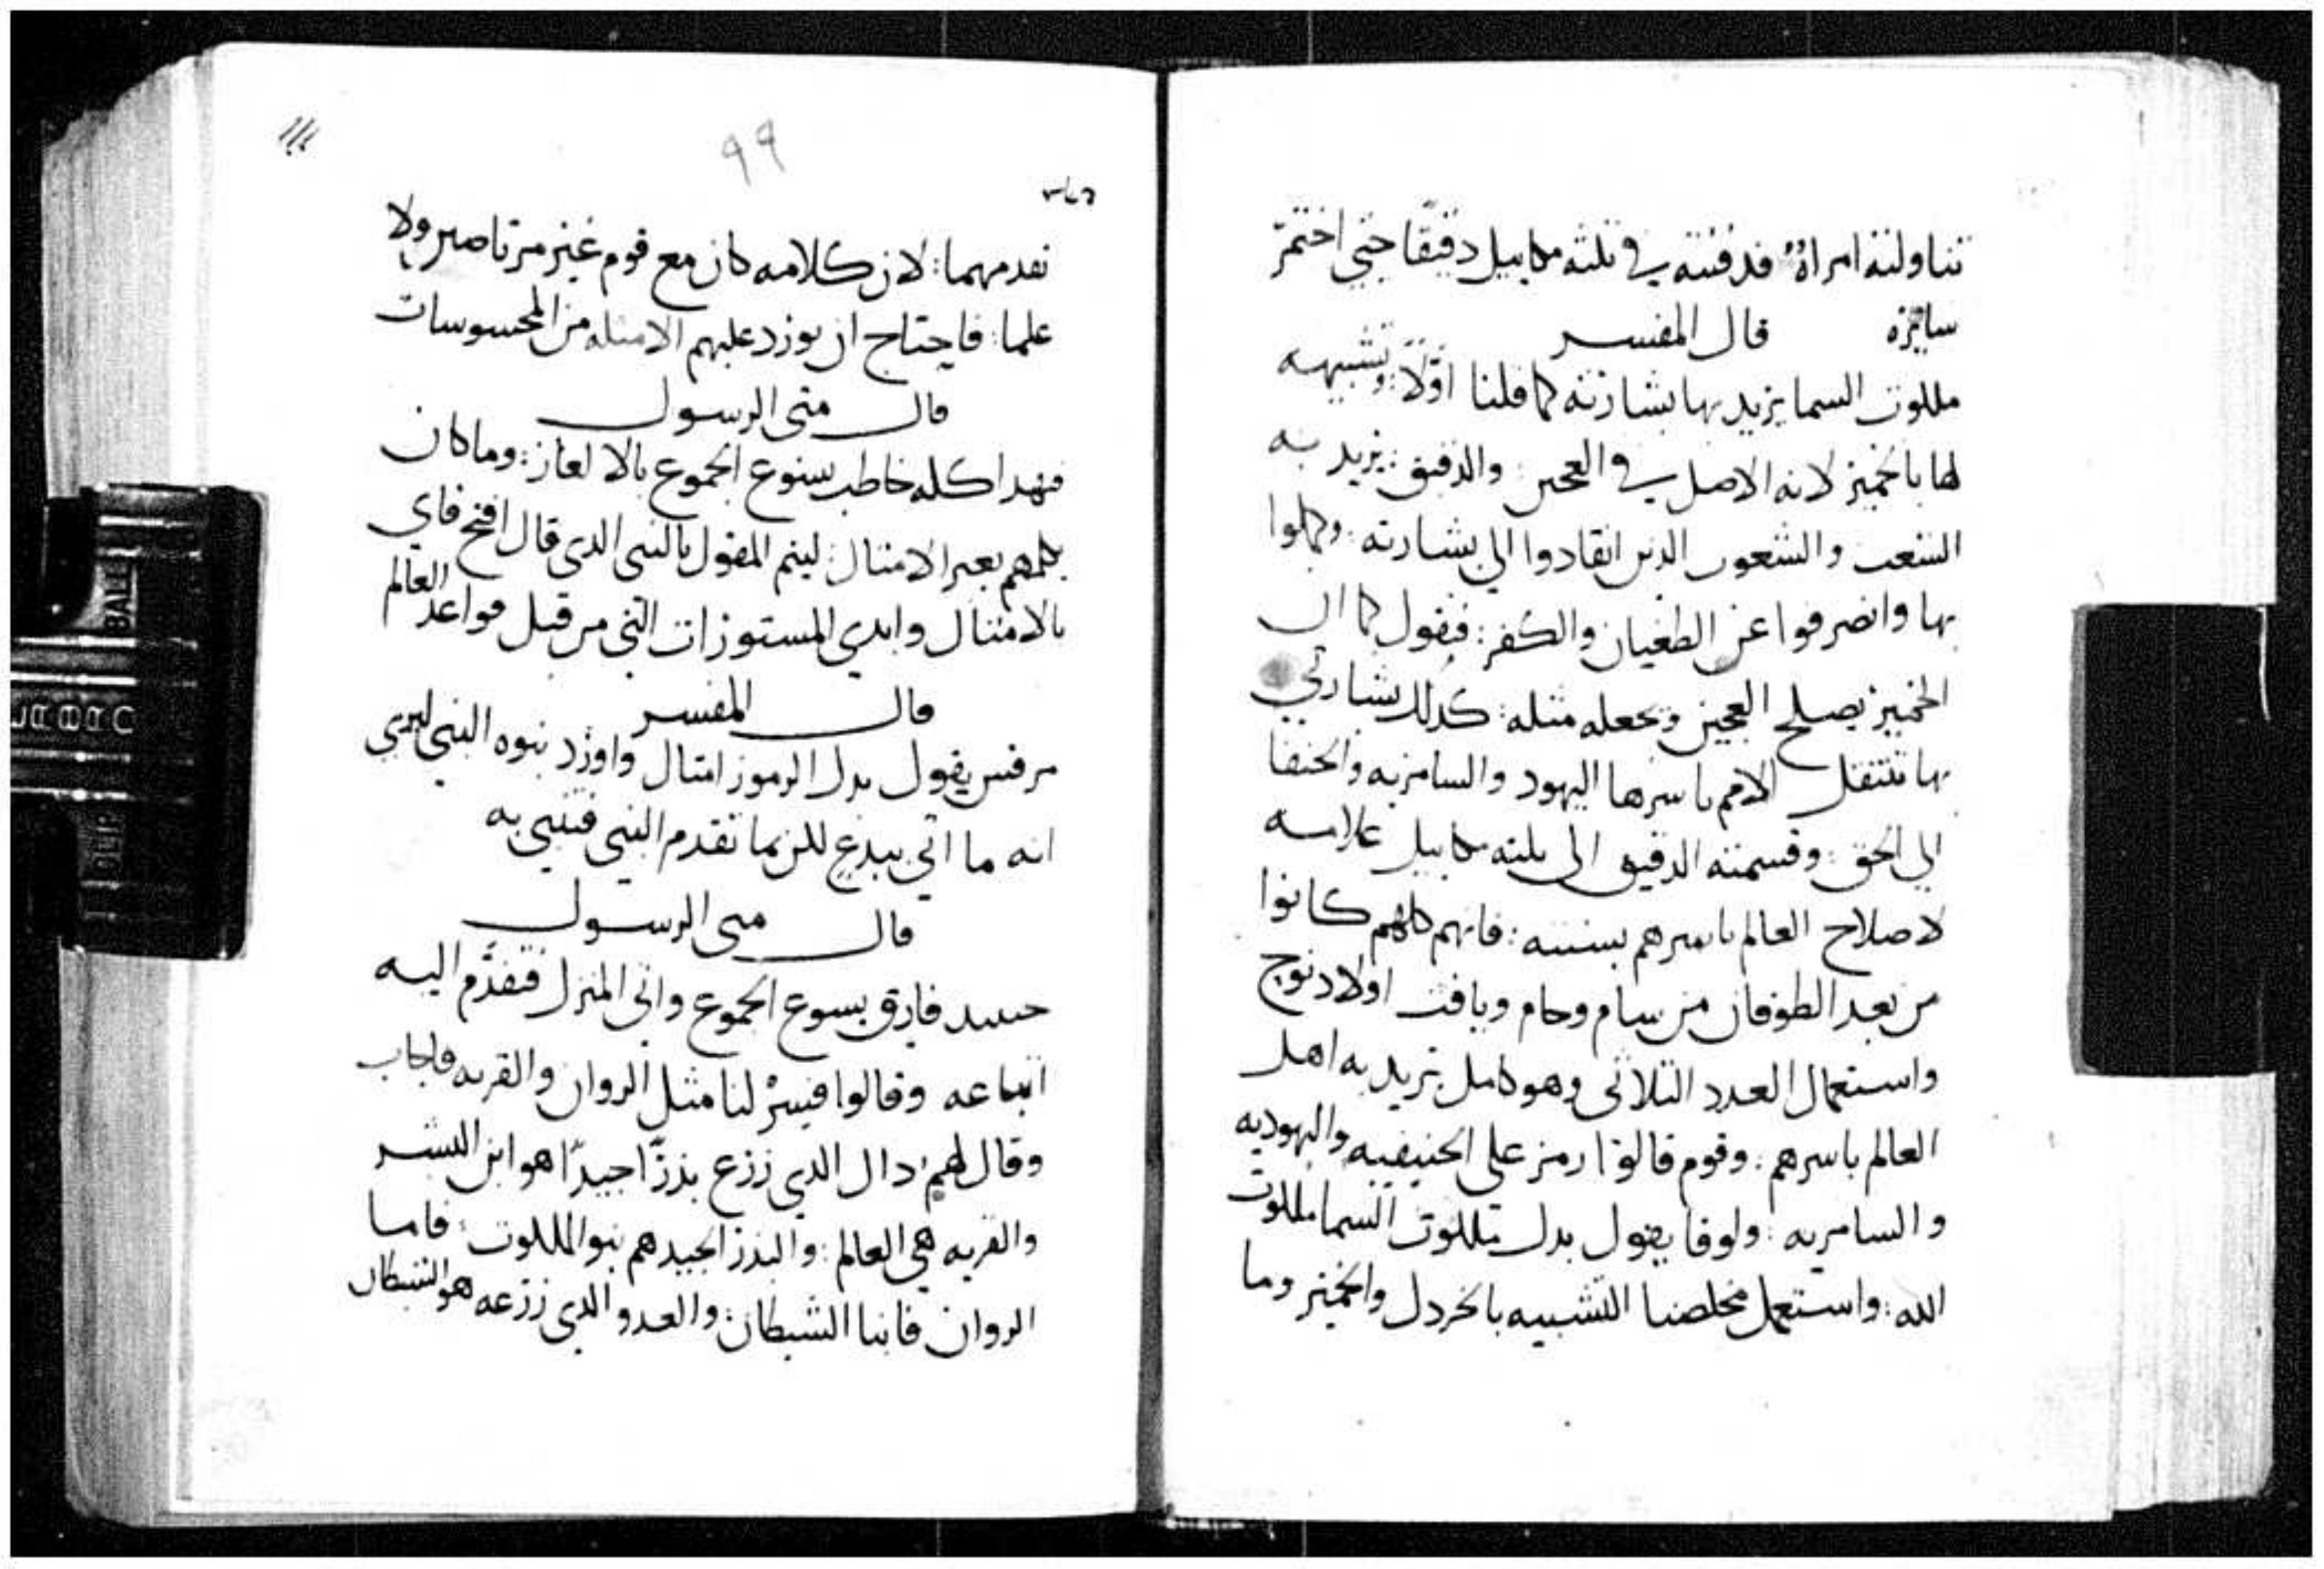 تناولته امراة فدفنته في ثلثه مكاييل دقيقا حتي اختمر
سايره قال المفسر
ملكوت السما يريد بها بشارته كما قلنا اولا وتشبيهه
لها بالخمير لانه الاصل في العجين والدقيق يريد به
الشعب والشعوب الدين انقادوا الي بشارته وكملوا
بها وانصرفوا عن الطغيان والكفر فيقول كما ان
الخمير يصلح العجين ويجعله مثله كدلك بشارتي
بها تنتقل الامم باسرها اليهود والسامريه والحنفا
الي الحق وقسمته الدقيق الى ثلثه مكاييل علامه
لاصلاح العالم باسرهم بسننه فانهم كلهم كانوا
من بعد الطوفان من سام وحام ويافت اولاد نوح
واستعمال العدد الثلاثي وهو كامل يريد به اهل
العالم باسرهم وقوم قالوا رمز على الحنيفيه واليهوديه
والسامريه ولوقا يقول بدل ملكوت السما ملكوت
الله واستعمل مخلصنا التشبيه بالخردل والخمير وما
٩٩
تقدمهما لان كلامه كان مع قوم غير مرتاضين ولا
علما فاحتاج ان يورد عليهم الامثله من المحسوسات
قال متى الرسول
فهدا كله خاطب يسوع الجموع بالالغاز وما كان
يكلمهم بغير الامثال ليتم المقول بالنبي الدي قال افتح فاي
بالامثال وابدي المستورات التي من قبل قواعد العالم
قال المفسر
مرقس يقول بدل الرموز امثال واورد نبوه النبي ليري
انه ما اتي ببدع لكن بما تقدم النبي فتنبي به
قال متى الرسول
حينيد فارق يسوع الجموع واتي المنزل فتقدم اليه
اتباعه وقالوا فسر لنا مثل الزوان والقريه فاجاب
وقال لهم داك الدي زرع بدرا جيدا هو ابن البشر
والقريه هي العالم والبدر الجيد هم بنو الملكوت فاما
الزوان فابنا الشيطان والعدو الدي زرعه هو الشيطان